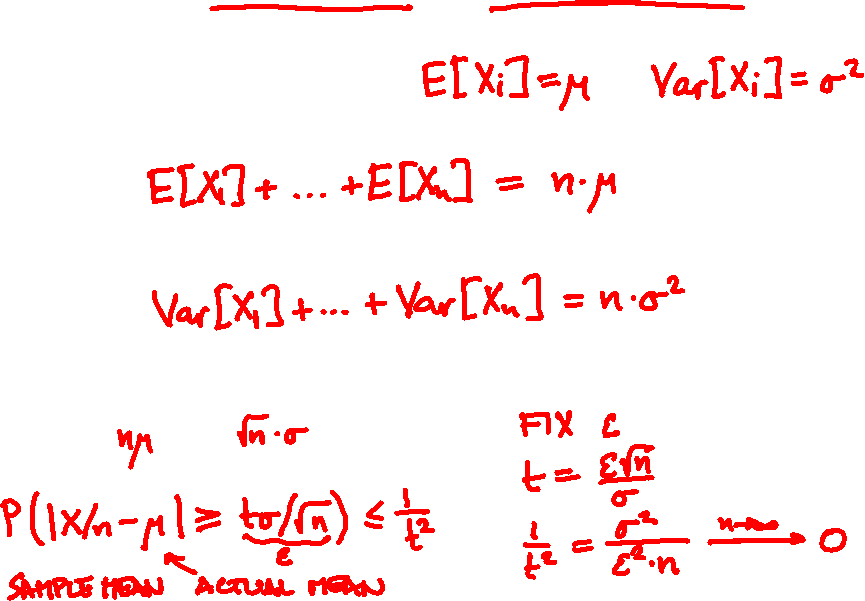 E[Xi]=μ Var[Xi]=σ²
E[X₁]+...+E[Xₙ] = n·μ
Var[X₁]+...+Var[Xₙ] = n·σ²
nμ √n·σ
P(|X/n-μ| ≥ tσ/√n) ≤ 1/t²
ε
SAMPLE MEAN ACTUAL MEAN
FIX ε
t = ε√n/σ
1/t² = σ²/ε²·n n→∞ 0